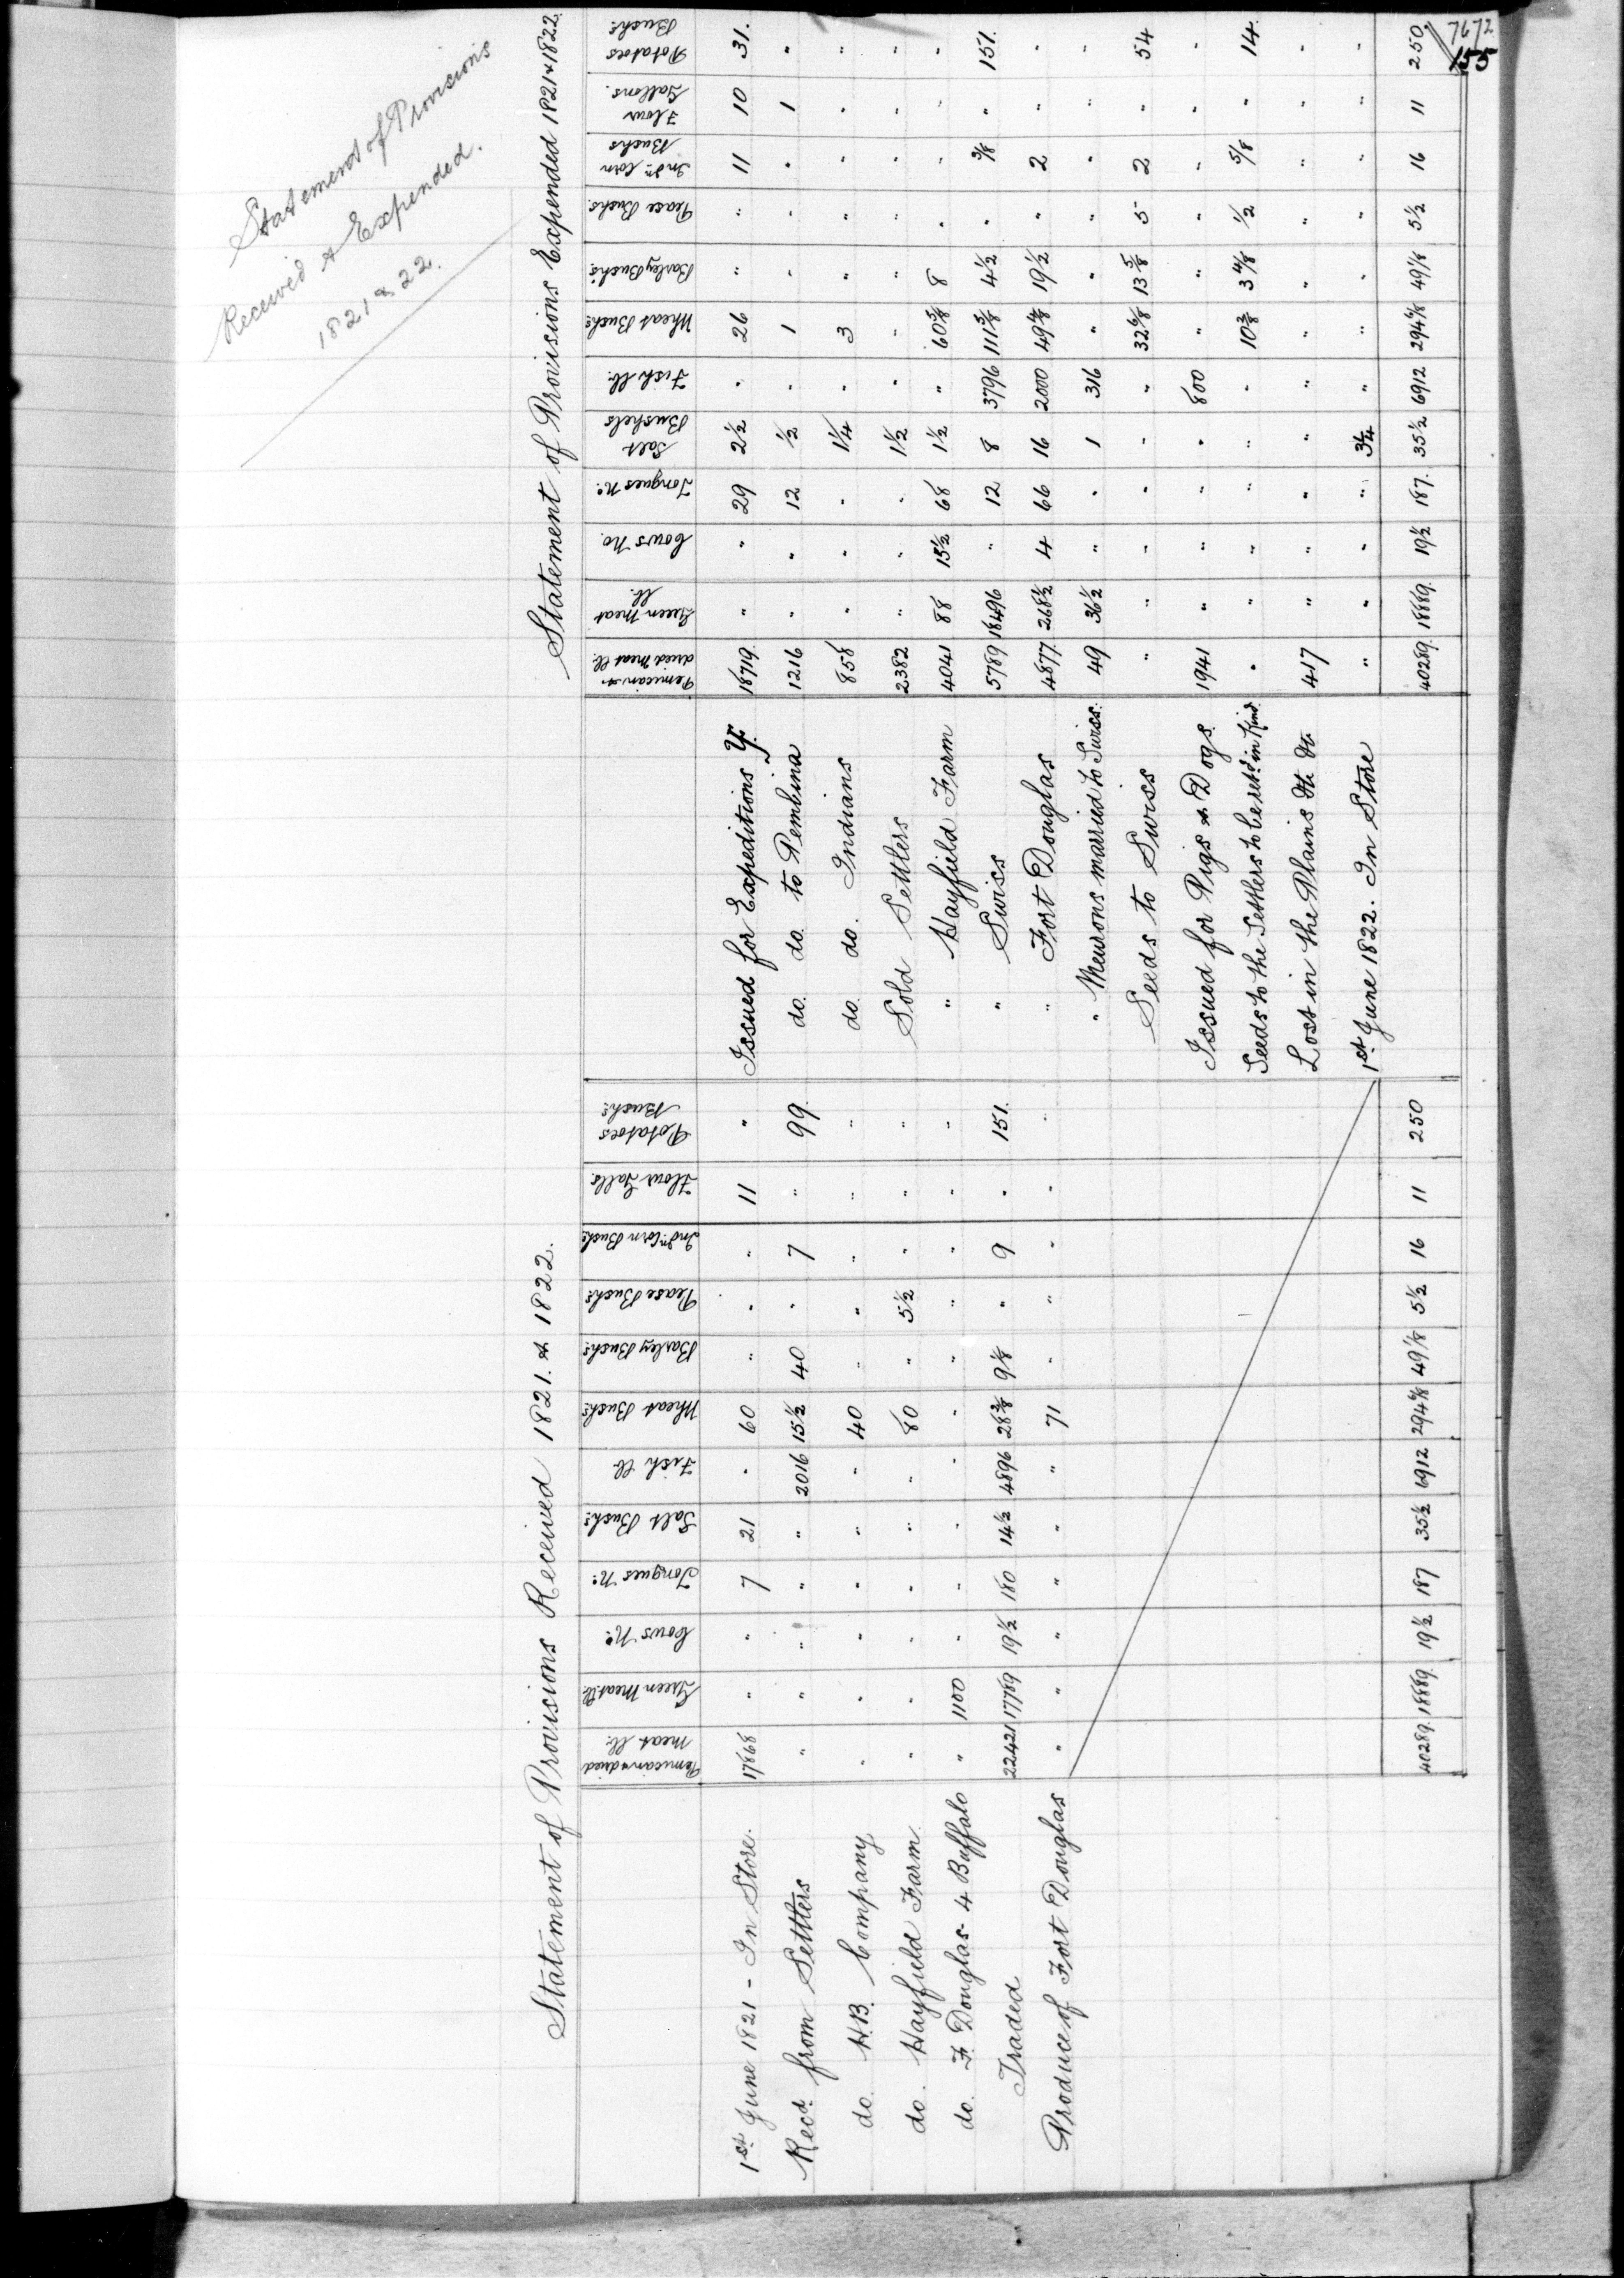 Statement of Provisions
Received & Expended.
1821 & 22.
Statement of Provisions Received 1821. & 1822.
Pemican & dried Meat lb. | Green Meat lb. | Cows No. | Tongues No. | Salt Bushs. | Fish lb. | Wheat Bushs. | Barley Bushs. | Pease Bushs. | Indn. Corn Bushs. | Flour Galls. | Potatoes Bushs.
1st June 1821 - In Store. | 17868 | " | " | 7 | 21 | " | 60 | " | " | " | 11 | "
Recd. from Settlers | " | " | " | " | " | 2016 | 15½ | 40 | " | 7 | " | 99.
do. H.B. Company | " | " | " | " | " | " | 40 | " | " | " | " | "
do. Hayfield Farm | " | " | " | " | " | " | 80 | " | 5½ | " | " | "
do. F. Douglas 4 Buffalo | " | 1100 | " | " | " | " | " | " | " | " | " | "
Traded | 22421 | 17789 | 19½ | 180 | 14½ | 4896 | 28⅜ | 9⅛ | " | 9 | " | 151.
Produce of Fort Douglas | " | " | " | " | " | " | 71 | " | " | " | " | "
40289. | 18889. | 19½ | 187 | 35½ | 6912 | 294⅜ | 49⅛ | 5½ | 16 | 11 | 250
Statement of Provisions Expended 1821 & 1822.
Pemican & dried Meat lb. | Green Meat lb. | Cows No. | Tongues No. | Salt Bushels | Fish lb. | Wheat Bushs. | Barley Bushs. | Pease Bushs. | Indn. Corn Bushs | Flour Gallons. | Potatoes Bushs.
Issued for Expeditions Yf. | 18719. | " | " | 29 | 2½ | " | 26 | " | " | 11 | 10 | 31.
do. do. to Pembina | 1216 | " | " | 12 | ½ | " | 1 | " | " | " | 1 | "
do. do. Indians | 858 | " | " | " | 1¼ | " | 3 | " | " | " | " | "
Sold Settlers | 2382 | " | " | " | 1½ | " | " | " | " | " | " | "
" Hayfield Farm | 4041 | 88 | 15½ | 68 | 1½ | " | 60⅝ | 8 | " | " | " | "
" Swiss | 5789 | 18496 | " | 12 | 8 | 3796 | 111⅝ | 4½ | " | ⅜ | " | 151.
" Fort Douglas | 4877. | 268½ | 4 | 66 | 16 | 2000 | 49⅘ | 19½ | " | 2 | " | "
" Meurons married to Swiss. | 49 | 36½ | " | " | 1 | 316 | " | " | " | " | " | "
Seeds to Swiss | " | " | " | " | " | " | 32⁶⁄₈ | 13⅝ | 5 | 2 | " | 54
Issued for Pigs & Dogs. | 1941 | " | " | " | " | 800 | " | " | " | " | " | "
Seeds to the Settlers to be retd. in Kind. | " | " | " | " | " | " | 10⅜ | 3⁴⁄₈ | ½ | ⅝ | " | 14.
Lost in the Plains &c. &c. | 417 | " | " | " | " | " | " | " | " | " | " | "
1st June 1822. In Store | " | " | " | " | 3¼ | " | " | " | " | " | " | "
40289. | 18889. | 19½ | 187. | 35½ | 6912 | 294⅜ | 49⅛ | 5½ | 16 | 11 | 250.
7672
155